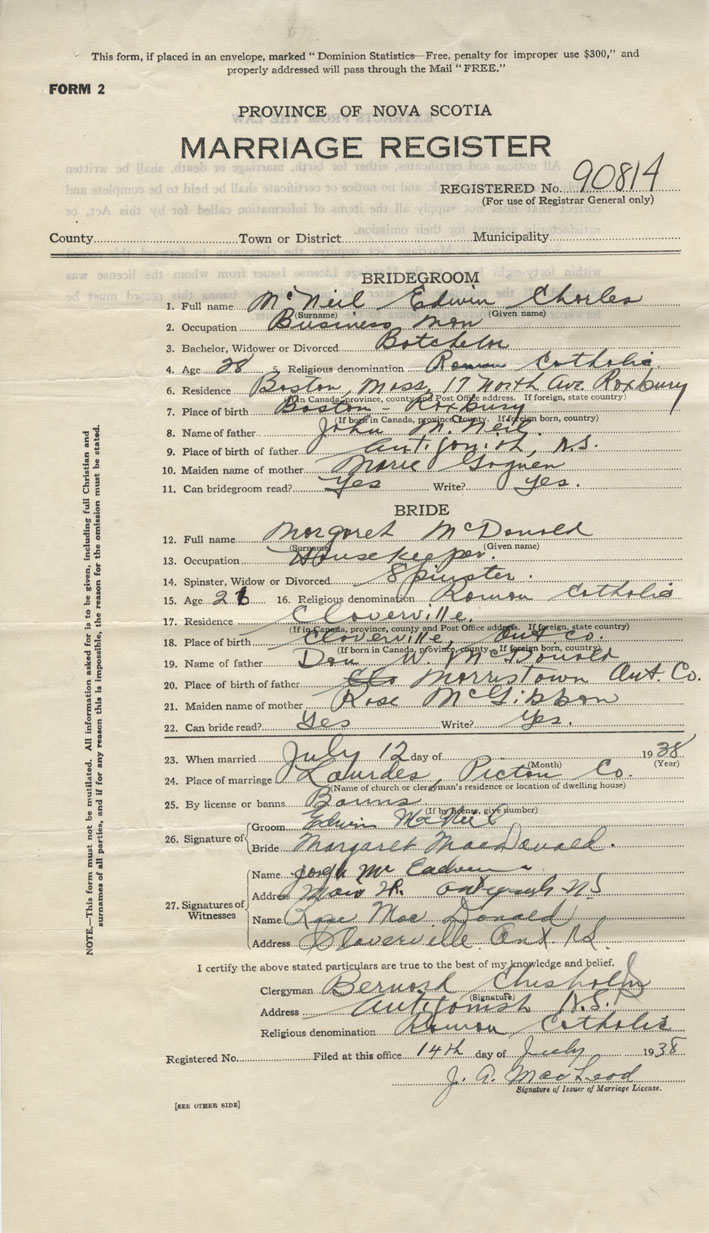 This form, if placed in an envelope, marked "Dominion Statistics—Free, penalty for improper use $300," and
properly addressed will pass through the Mail "FREE."
FORM 2
PROVINCE OF NOVA SCOTIA
MARRIAGE REGISTER
REGISTERED No. 90814
(For use of Registrar General only)
County Town or District Municipality
BRIDEGROOM
1. Full name McNeil Edwin Charles
(Surname) (Given name)
2. Occupation Business man
3. Bachelor, Widower or Divorced Batchelor
4. Age 28 5. Religious denomination Roman Catholic
6. Residence Boston, Mass, 17 North Ave Roxbury
(If in Canada, province, county and Post Office address. If foreign, state country)
7. Place of birth Boston - Roxbury
(If born in Canada, province, county. If foreign born, country)
8. Name of father John McNeil
9. Place of birth of father Antigonish, N.S.
10. Maiden name of mother Marie
11. Can bridegroom read? Yes Write? Yes.
BRIDE
12. Full name Margaret McDonald
(Surname) (Given name)
13. Occupation Housekeeper.
14. Spinster, Widow or Divorced Spinster.
15. Age 16. Religious denomination Roman Catholic
17. Residence Cloverville.
(If in Canada, province, county and Post Office address. If foreign, state country)
18. Place of birth Cloverville, Ant Co.
(If born in Canada, province, county. If foreign born, country)
19. Name of father Dan W. McDonald
20. Place of birth of father Morristown Ant. Co.
21. Maiden name of mother Rose McGibbon
22. Can bride read? Yes Write? Yes.
23. When married July 12 day of 1938
(Month) (Year)
24. Place of marriage Lourdes, Pictou Co.
(Name of church or clergyman's residence or location of dwelling house)
25. By license or banns Banns
(If by license, give number)
26. Signature of
Groom Edwin MacNeil
Bride Margaret MacDonald.
27. Signatures of Witnesses
Name Joseph Mc
Address Antigonish NS
Name Rose MacDonald
Address Cloverville Ant. N.S.
I certify the above stated particulars are true to the best of my knowledge and belief.
Clergyman Bernard Chisholm
(Signature)
Address Antigonish N.S.
Religious denomination Roman Catholic
Registered No. Filed at this office 14th day of July 1938
J. A. MacLeod
Signature of Issuer of Marriage License.
[SEE OTHER SIDE]
NOTE.—This form must not be mutilated. All information asked for is to be given, including full Christian and
surnames of all parties, and if for any reason this is impossible, the reason for the omission must be stated.